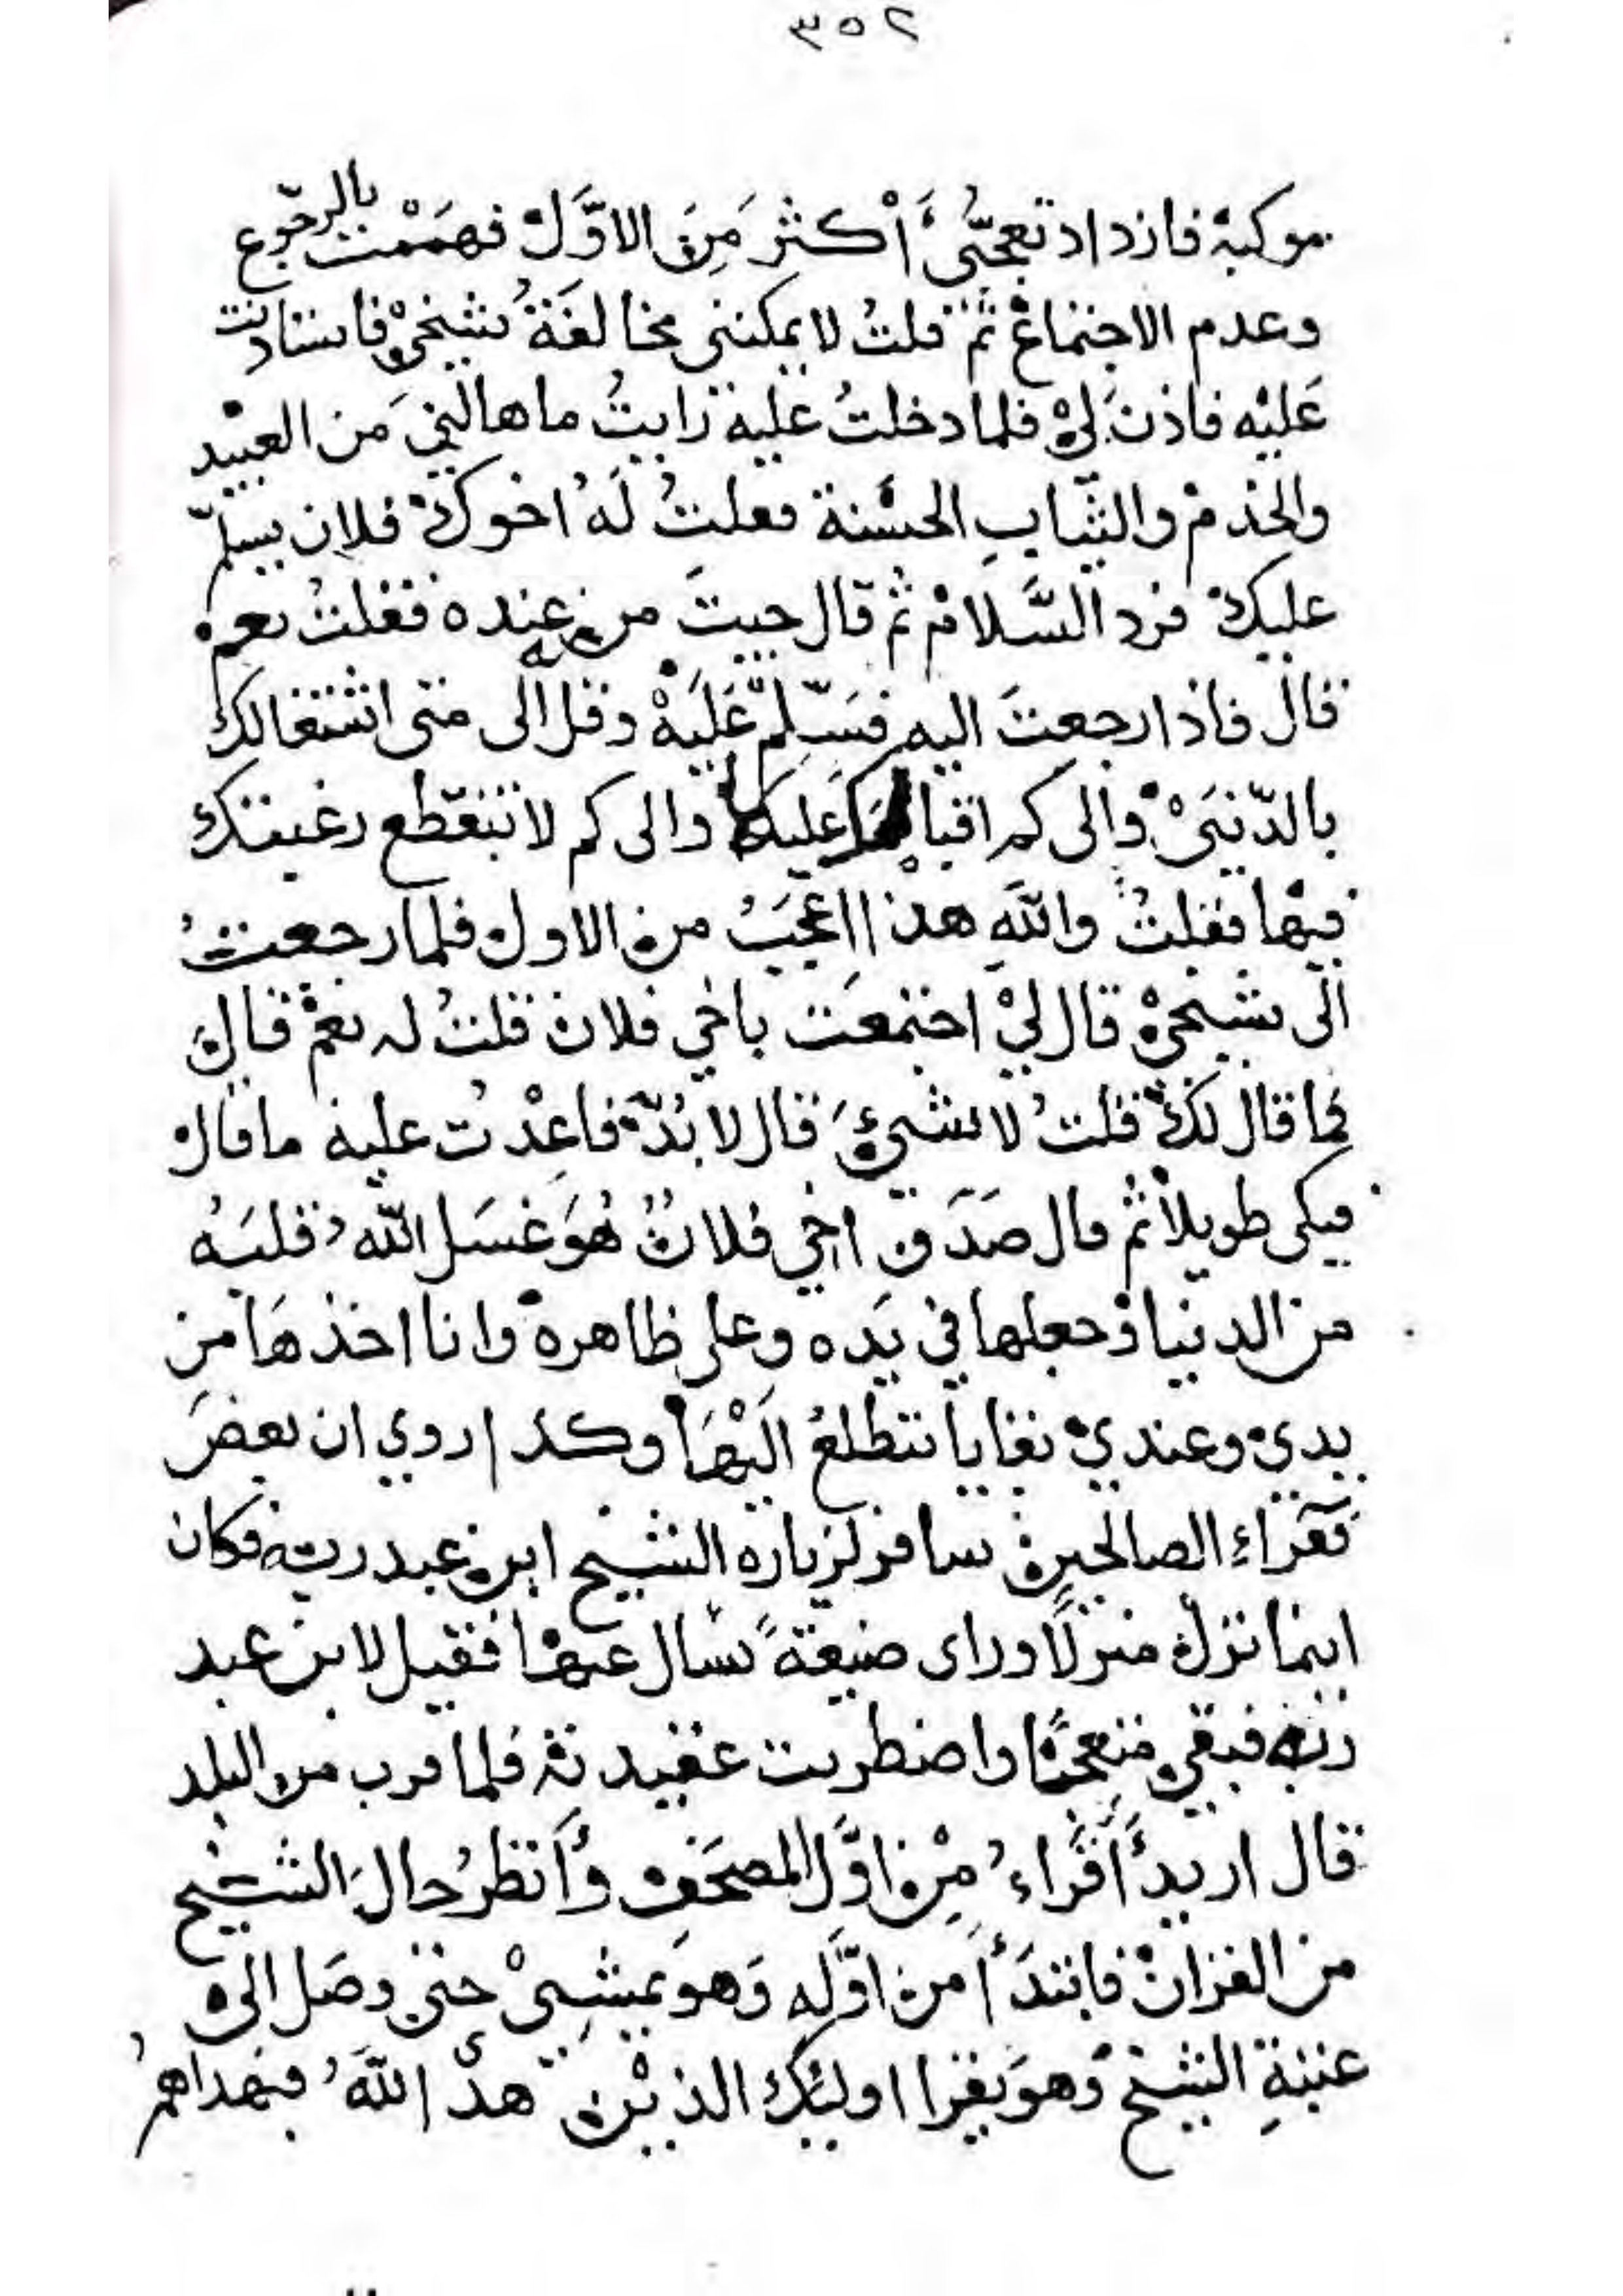 ٣٥٢
موكبه فازداد تعجّبى أكثر مِنَ الاوَّل فهمَمْت بالرجوع
وعدم الاجتماع ثم قلتُ لا يمكننى مخالفةُ شيخىْ فاستاذنت
عَليْه فاذنَ لىْ فلما دخلتُ عليه رايتُ ما هالنى مَن العبيْد
والخدمْ والثّيابِ الحسْنة فقلتُ لَهُ اخوكْ فلان يسلّم
عليكْ فرد السَّلامْ ثم قال جيتَ من عنده فقلتُ نعم
قال فاذا رجعتَ اليه فسَلّم عَليَهْ وقل الى متى اشتغالك
بالدّنيَىْ والى كم اقبالك عليها والى كم لا تنقطع رغبتك
فيْها فقلتُ واللهِ هذا اعجَبُ من الاول فلما رجعتُ
الى شيخىْ قال لىْ اجتمعَت باخي فلان قلتُ له نعمْ قال
فما قال لكْ قلتُ لا شيءَ قال لا بُدّ فاعِدْتُ عليه ما قال
فبكى طويلاً ثم قال صَدَق اخي فلانٌ هُوَ غسَل اللهُ قلبَهُ
من الدنيا وجعلها في يَده وعلى ظاهره وانا اخذهَا من
يدىْ وعندىْ بقايا تتطلعُ اليْهَا وكذا روي ان بعضَ
فقراء الصالحين سافر لزياره الشيخ ابن عبد ربه فكان
اينما نزل منزلًا وراى ضيعةً سال عنها فقيل لابن عبد
ربه فبقي متعجبًا واضطربت عقيدته فلما قرب من البلد
قال اريدُ أقراءُ مِنْ اوَّل المصحَفِ وأنظرُ حالَ الشيخ
من القران فابتدَأ من اوَّلِه وَهو يمشىْ حتى وصَل الى
عتبةِ الشيخْ وهوَ يقرا اوليك الذيْن هدى اللهُ فبهداهمُ